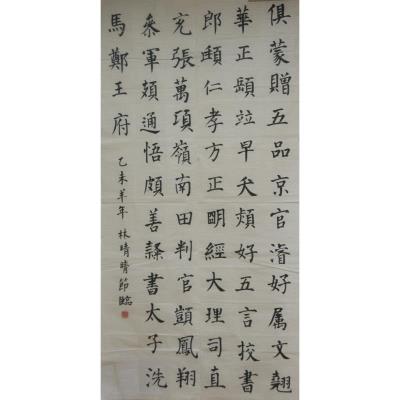 俱蒙贈五品京官濬好属文翹
華正頤竝早夭熲好五言挍書
郎頲仁孝方正明經大理司直
充張萬項嶺南田判官顗鳳翔
叅軍頗通悟頗善隸書太子洗
馬鄭王府
乙未羊年 林晴晴節臨